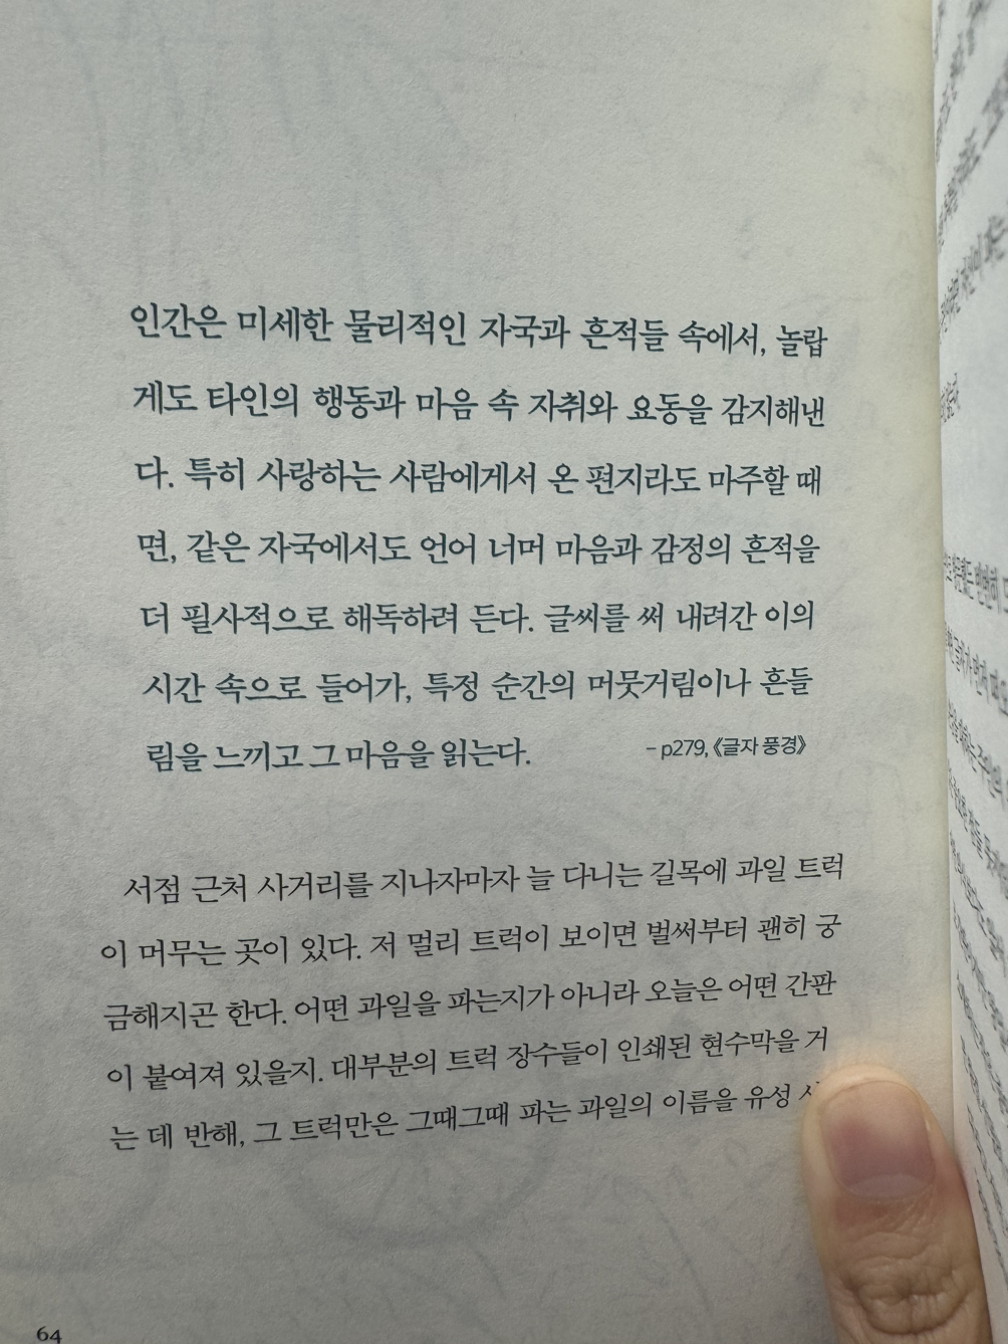 인간은 미세한 물리적인 자국과 흔적들 속에서, 놀랍
게도 타인의 행동과 마음 속 자취와 요동을 감지해낸
다. 특히 사랑하는 사람에게서 온 편지라도 마주할 때
면, 같은 자국에서도 언어 너머 마음과 감정의 흔적을
더 필사적으로 해독하려 든다. 글씨를 써 내려간 이의
시간 속으로 들어가, 특정 순간의 머뭇거림이나 흔들
림을 느끼고 그 마음을 읽는다.
– p279, 《글자 풍경》
서점 근처 사거리를 지나자마자 늘 다니는 길목에 과일 트럭
이 머무는 곳이 있다. 저 멀리 트럭이 보이면 벌써부터 괜히 궁
금해지곤 한다. 어떤 과일을 파는지가 아니라 오늘은 어떤 간판
이 붙여져 있을지. 대부분의 트럭 장수들이 인쇄된 현수막을 거
는 데 반해, 그 트럭만은 그때그때 파는 과일의 이름을 유성
64